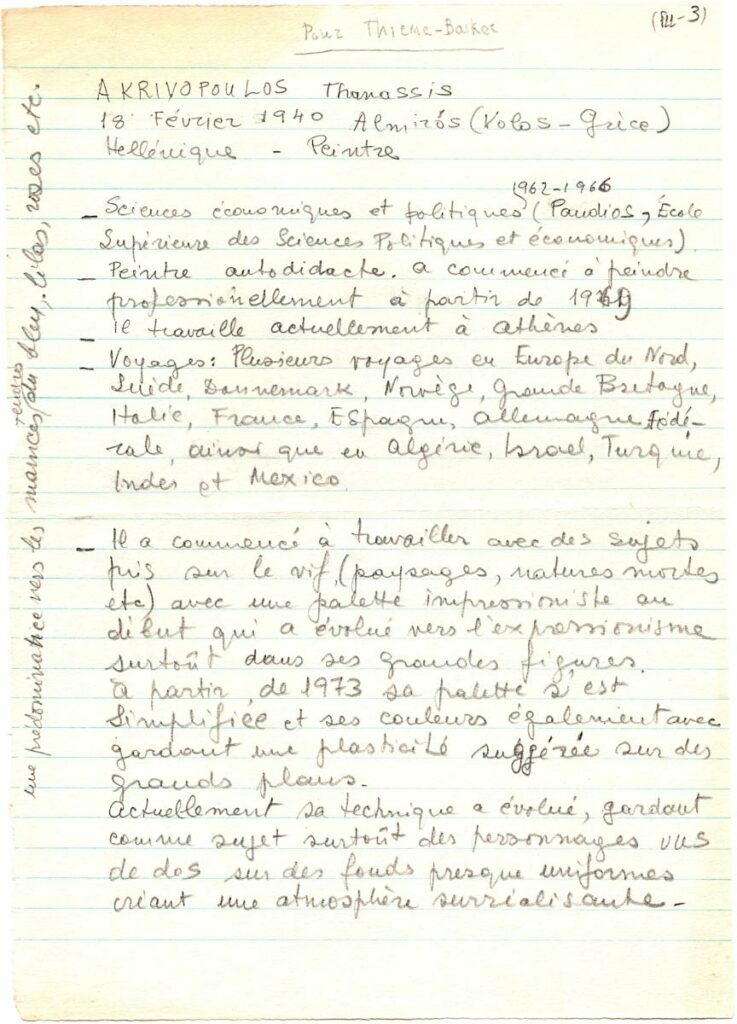 (III-3)
Pour Thieme-Becker
AKRIVOPOULOS Thanassis
18 Février 1940 Almirós (Volos - Grèce)
Hellénique - Peintre
1962-1966
- Sciences économiques et politiques (Pandios, École
Supérieure des Sciences Politiques et économiques)
- Peintre autodidacte. a commencé à peindre
professionellement à partir de 1969
- Il travaille actuellement à Athènes
- Voyages: Plusieurs voyages en Europe du Nord,
Suède, Dannemark, Norvège, Grande Bretagne,
Italie, France, Espagne, Allemagne Fédé-
rale, ainsi que en Algérie, Israel, Turquie,
Indes et Mexico
- Il a commencé à travailler avec des sujets
pris sur le vif, (paysages, natures mortes
etc) avec une palette impressioniste au
début qui a évolué vers l'expressionisme
surtoût dans ses grandes figures.
à partir de 1973 sa palette s'est
simplifiée et ses couleurs également avec
gardant une plasticité suggérée sur des
grands plans.
Actuellement sa technique a évolué, gardant
comme sujet surtoût des personnages vus
de dos sur des fonds presque uniformes
créant une atmosphère surréalisante -
tendres
une prédominance vers les nuances du bleu, lilas, roses etc.